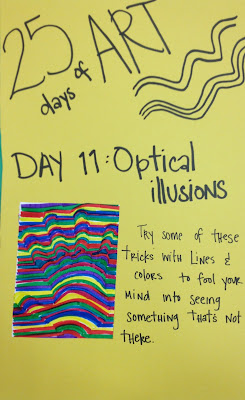 25
days of ART
DAY 11: Optical
illusions
TRY some of these
tricks with Lines &
colors to fool your
MIND into seeing
something that's not
there.